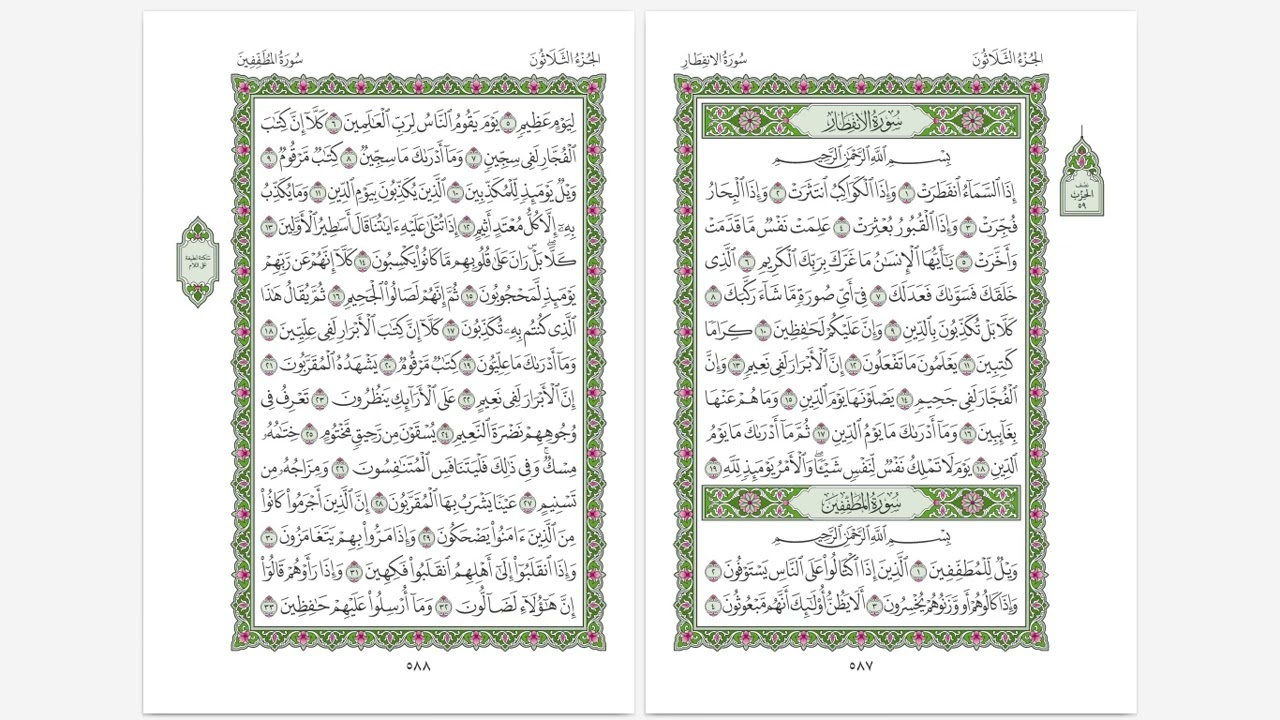 الجُزْءُ الثَّلَاثُونَ
سُورَةُ الانفِطَارِ
سُورَةُ الانفِطَارِ
بِسْمِ ٱللَّهِ ٱلرَّحْمَٰنِ ٱلرَّحِيمِ
إِذَا ٱلسَّمَآءُ ٱنفَطَرَتْ ١ وَإِذَا ٱلْكَوَاكِبُ ٱنتَثَرَتْ ٢ وَإِذَا ٱلْبِحَارُ
فُجِّرَتْ ٣ وَإِذَا ٱلْقُبُورُ بُعْثِرَتْ ٤ عَلِمَتْ نَفْسٌ مَّا قَدَّمَتْ
وَأَخَّرَتْ ٥ يَٰٓأَيُّهَا ٱلْإِنسَٰنُ مَا غَرَّكَ بِرَبِّكَ ٱلْكَرِيمِ ٦ ٱلَّذِى
خَلَقَكَ فَسَوَّىٰكَ فَعَدَلَكَ ٧ فِىٓ أَىِّ صُورَةٍ مَّا شَآءَ رَكَّبَكَ ٨
كَلَّا بَلْ تُكَذِّبُونَ بِٱلدِّينِ ٩ وَإِنَّ عَلَيْكُمْ لَحَٰفِظِينَ ١٠ كِرَامًا
كَٰتِبِينَ ١١ يَعْلَمُونَ مَا تَفْعَلُونَ ١٢ إِنَّ ٱلْأَبْرَارَ لَفِى نَعِيمٍ ١٣ وَإِنَّ
ٱلْفُجَّارَ لَفِى جَحِيمٍ ١٤ يَصْلَوْنَهَا يَوْمَ ٱلدِّينِ ١٥ وَمَا هُمْ عَنْهَا
بِغَآئِبِينَ ١٦ وَمَآ أَدْرَىٰكَ مَا يَوْمُ ٱلدِّينِ ١٧ ثُمَّ مَآ أَدْرَىٰكَ مَا يَوْمُ
ٱلدِّينِ ١٨ يَوْمَ لَا تَمْلِكُ نَفْسٌ لِّنَفْسٍ شَيْـًٔا ۖ وَٱلْأَمْرُ يَوْمَئِذٍ لِّلَّهِ ١٩
سُورَةُ المُطَفِّفِينَ
بِسْمِ ٱللَّهِ ٱلرَّحْمَٰنِ ٱلرَّحِيمِ
وَيْلٌ لِّلْمُطَفِّفِينَ ١ ٱلَّذِينَ إِذَا ٱكْتَالُوا۟ عَلَى ٱلنَّاسِ يَسْتَوْفُونَ ٢
وَإِذَا كَالُوهُمْ أَو وَّزَنُوهُمْ يُخْسِرُونَ ٣ أَلَا يَظُنُّ أُو۟لَٰٓئِكَ أَنَّهُم مَّبْعُوثُونَ ٤
نصف
الحزب
٥٩
٥٨٧
الجُزْءُ الثَّلَاثُونَ
سُورَةُ المُطَفِّفِينَ
لِيَوْمٍ عَظِيمٍ ٥ يَوْمَ يَقُومُ ٱلنَّاسُ لِرَبِّ ٱلْعَٰلَمِينَ ٦ كَلَّآ إِنَّ كِتَٰبَ
ٱلْفُجَّارِ لَفِى سِجِّينٍ ٧ وَمَآ أَدْرَىٰكَ مَا سِجِّينٌ ٨ كِتَٰبٌ مَّرْقُومٌ ٩
وَيْلٌ يَوْمَئِذٍ لِّلْمُكَذِّبِينَ ١٠ ٱلَّذِينَ يُكَذِّبُونَ بِيَوْمِ ٱلدِّينِ ١١ وَمَا يُكَذِّبُ
بِهِۦٓ إِلَّا كُلُّ مُعْتَدٍ أَثِيمٍ ١٢ إِذَا تُتْلَىٰ عَلَيْهِ ءَايَٰتُنَا قَالَ أَسَٰطِيرُ ٱلْأَوَّلِينَ ١٣
كَلَّا ۖ بَلْ ۜ رَانَ عَلَىٰ قُلُوبِهِم مَّا كَانُوا۟ يَكْسِبُونَ ١٤ كَلَّآ إِنَّهُمْ عَن رَّبِّهِمْ
يَوْمَئِذٍ لَّمَحْجُوبُونَ ١٥ ثُمَّ إِنَّهُمْ لَصَالُوا۟ ٱلْجَحِيمِ ١٦ ثُمَّ يُقَالُ هَٰذَا
ٱلَّذِى كُنتُم بِهِۦ تُكَذِّبُونَ ١٧ كَلَّآ إِنَّ كِتَٰبَ ٱلْأَبْرَارِ لَفِى عِلِّيِّينَ ١٨
وَمَآ أَدْرَىٰكَ مَا عِلِّيُّونَ ١٩ كِتَٰبٌ مَّرْقُومٌ ٢٠ يَشْهَدُهُ ٱلْمُقَرَّبُونَ ٢١
إِنَّ ٱلْأَبْرَارَ لَفِى نَعِيمٍ ٢٢ عَلَى ٱلْأَرَآئِكِ يَنظُرُونَ ٢٣ تَعْرِفُ فِى
وُجُوهِهِمْ نَضْرَةَ ٱلنَّعِيمِ ٢٤ يُسْقَوْنَ مِن رَّحِيقٍ مَّخْتُومٍ ٢٥ خِتَٰمُهُۥ
مِسْكٌ ۚ وَفِى ذَٰلِكَ فَلْيَتَنَافَسِ ٱلْمُتَنَٰفِسُونَ ٢٦ وَمِزَاجُهُۥ مِن
تَسْنِيمٍ ٢٧ عَيْنًا يَشْرَبُ بِهَا ٱلْمُقَرَّبُونَ ٢٨ إِنَّ ٱلَّذِينَ أَجْرَمُوا۟ كَانُوا۟
مِنَ ٱلَّذِينَ ءَامَنُوا۟ يَضْحَكُونَ ٢٩ وَإِذَا مَرُّوا۟ بِهِمْ يَتَغَامَزُونَ ٣٠
وَإِذَا ٱنقَلَبُوٓا۟ إِلَىٰٓ أَهْلِهِمُ ٱنقَلَبُوا۟ فَكِهِينَ ٣١ وَإِذَا رَأَوْهُمْ قَالُوٓا۟
إِنَّ هَٰٓؤُلَآءِ لَضَآلُّونَ ٣٢ وَمَآ أُرْسِلُوا۟ عَلَيْهِمْ حَٰفِظِينَ ٣٣
سكتة لطيفة
على اللام
٥٨٨